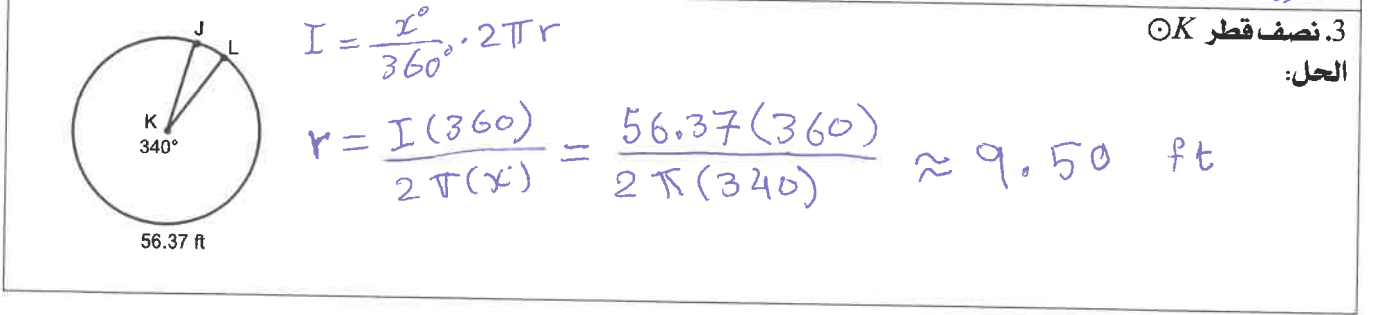 3. نصف قطر ⊙K
الحل:
J
L
K
340°
56.37 ft
I = x°/360° · 2πr
r = I(360)/2π(x) = 56.37(360)/2π(340) ≈ 9.50 ft